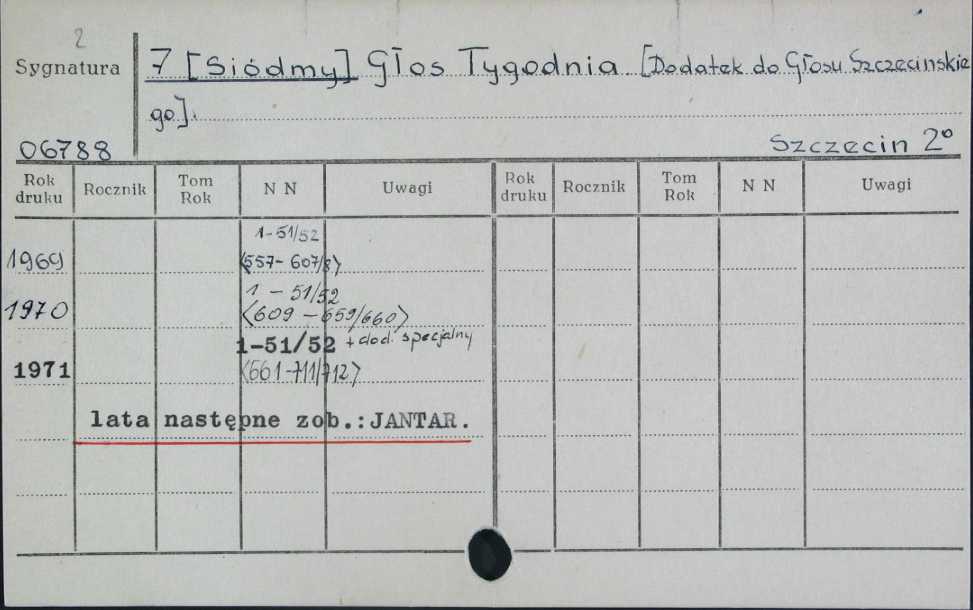 2
Sygnatura 7 [Siódmy] Głos Tygodnia [Dodatek do Głosu Szczecińskie
go].
06788 Szczecin 2°
Rok druku Rocznik Tom Rok N N Uwagi Rok druku Rocznik Tom Rok N N Uwagi
1-51/52
1969 <557-607/8>
1 - 51/52
1970 <609 - 659/660>
1-51/52 + dod. specjalny
1971 <661-711/712>
lata następne zob.:JANTAR.